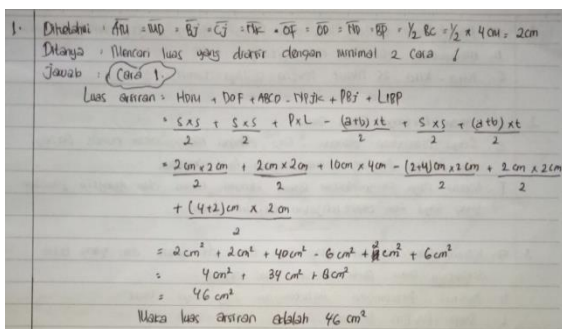 1. Diketahui : AM = MD = BJ = CJ = MK = OF = OD = ND = BP = 1/2 BC = 1/2 x 4 cm = 2cm
Ditanya : Mencari luas yang diarsir dengan minimal 2 cara !
Jawab : Cara 1.
Luas arsiran = HDM + DOF + ABCD - MPJK + PBJ + LIBP
= SxS/2 + SxS/2 + PxL - (a+b)xt/2 + SxS/2 + (a+b)xt/2
= 2 cm x 2 cm/2 + 2cm x 2cm/2 + 10cm x 4cm - (2+4)cm x 2cm/2 + 2 cm x 2cm/2
+ (4+2)cm x 2 cm/2
= 2cm² + 2cm² + 40cm² - 6cm² + 2cm² + 6cm²
= 4cm² + 34 cm² + 8cm²
= 46 cm²
Maka luas arsiran adalah 46 cm²